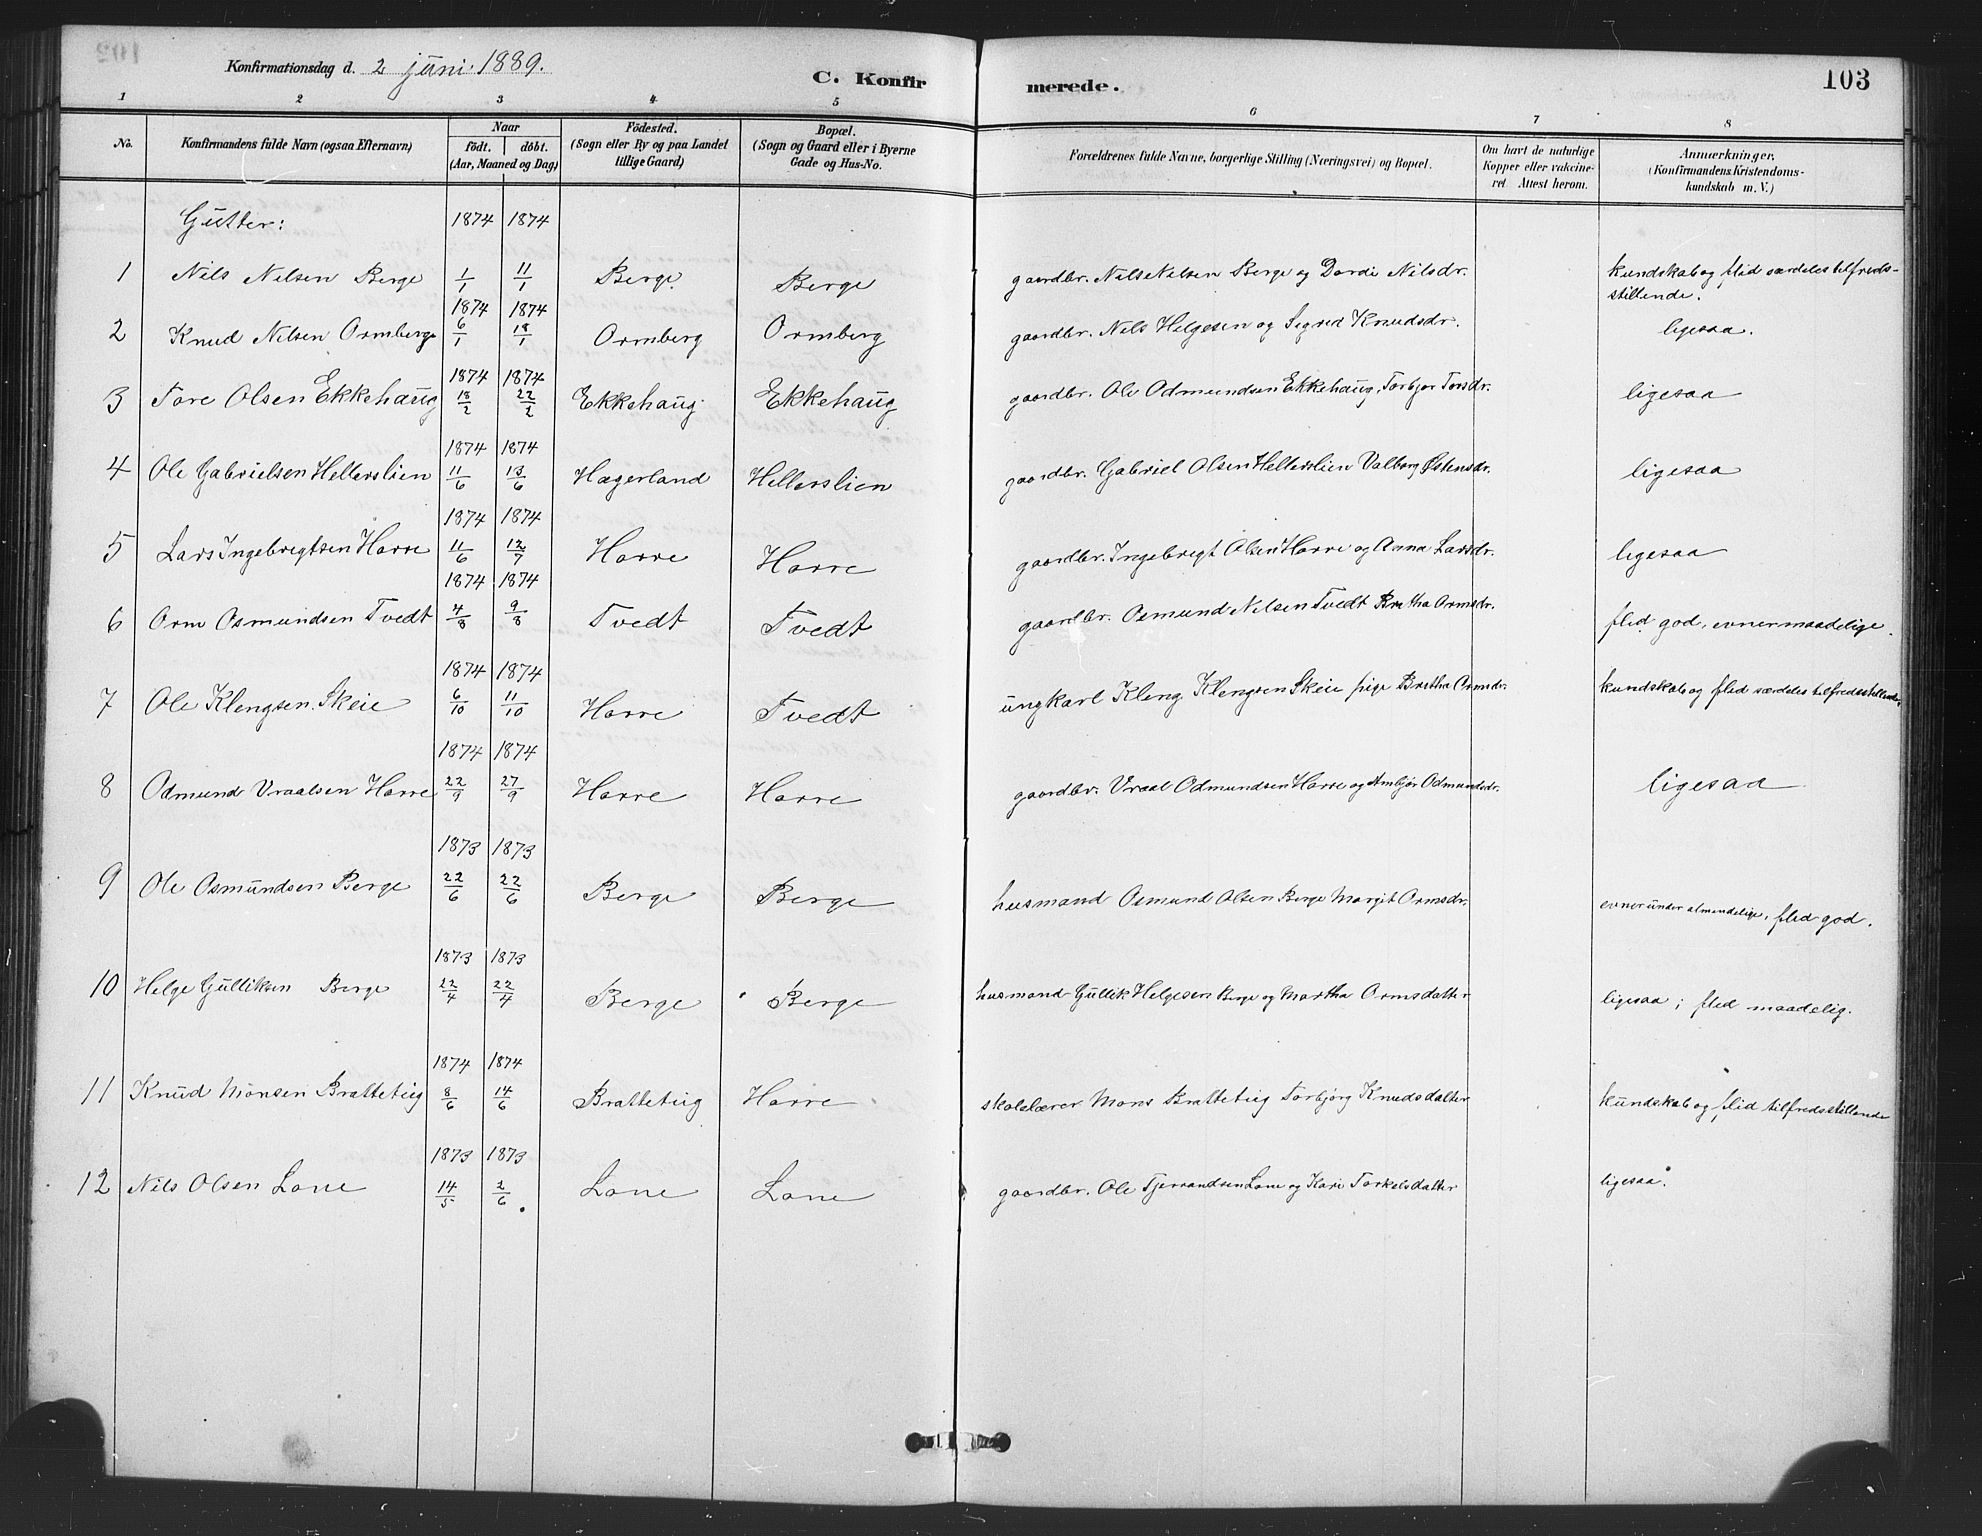 Konfirmationsdag d. 2 juni 1889. C. Konfirmerede. 103
1 2 3 4 5 6 7 8
No. Konfirmandens fulde Navn (ogsaa Efternavn) Naar födt. döbt. (Aar, Maaned og Dag) Födested. (Sogn eller By og paa Landet tillige Gaard) Bopæl. (Sogn og Gaard eller i Byerne Gade og Hus-No. Forældrenes fulde Navne, borgerlige Stilling (Næringsvei) og Bopæl. Om havt de naturlige Kopper eller vakcineret. Attest herom. Anmærkninger. (Konfirmandens Kristendomskundskab m. V.)
Gutter: 1874 1874
1 Nils Nelsen Berge 1/1 11/1 Berge. Berge gaardbr. Nils Nelsen Berge og Dordi Nilsdr. kundskab og flid særdeles tilfreds-
stillende.
1874 1874
2 Knud Nelsen Ormberge 6/1 18/1 Ormberg Ormberg gaardbr. Nels Helgesen og Sigrid Knudsdr. ligesaa.
1874 1874
3 Tore Olsen Ekkehaug 18/2 22/2 Ekkehaug. Ekkehaug gaardbr. Ole Odmundsen Ekkehaug, Torbjør Torsdr. ligesaa
1874 1874
4 Ole Gabrielsen Hellerslien 11/6 13/6 Hægerland Hellerslien gaardbr. Gabriel Olsen Hellerslien Valborg Østensdr. ligesaa
1874 1874
5 Lars Ingebregtsen Horre 11/6 12/7 Horre Horre gaardbr. Ingebregt Olsen Horre og Anna Larsdr. ligesaa
1874 1874
6 Orm Osmundsen Tvedt 4/8 9/8 Tvedt Tvedt gaardbr. Osmund Nelsen Tvedt Bretha Ormsdr. flid god, evner maadelige.
1874 1874
7 Ole Klengsen Skeie 6/10 11/10 Horre Tvedt ungkarl Kleng Klengsen Skeie pige Bretha Ormsdr. kundskab og flid særdeles tilfredsstillende.
1874 1874
8 Odmund Vraalsen Horre 22/9 27/9 Horre Horre gaardbr. Vraal Odmundsen Horre og Ambjør Odmundsdr. ligesaa
1873 1873
9 Ole Osmundsen Berge 22/6 22/6 Berge Berge husmand Osmund Olsen Berge Margit Ormsdr. evner under almendelige, flid god.
1873 1873
10 Helge Gulliksen Berge 22/4 22/4 Berge Berge husmand Gullik Helgesen Berge og Martha Ormsdatter ligesaa; flid maadelig.
1874 1874
11 Knud Monsen Bratteteig 8/6 14/6 Bratteteig Horre skolelærer Mons Bratteteig Torbjørg Knudsdatter kundskab og flid tilfredsstillende
1873 1873
12 Nils Olsen Lone 14/5 2/6 Lone Lone gaardbr. Ole Tjerrandsen Lone og Kari Torkelsdatter ligesaa.